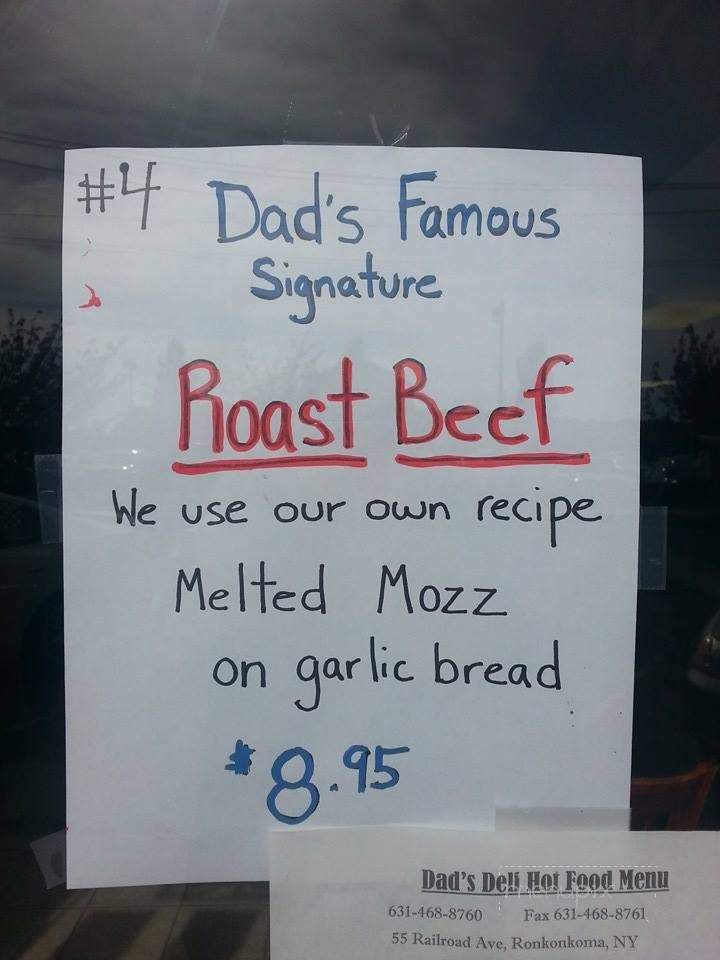 #4 Dad's Famous
Signature
Roast Beef
We use our own recipe
Melted Mozz
on garlic bread
$8.95
Dad's Deli Hot Food Menu
631-468-8760 Fax 631-468-8761
55 Railroad Ave, Ronkonkoma, NY
menupix